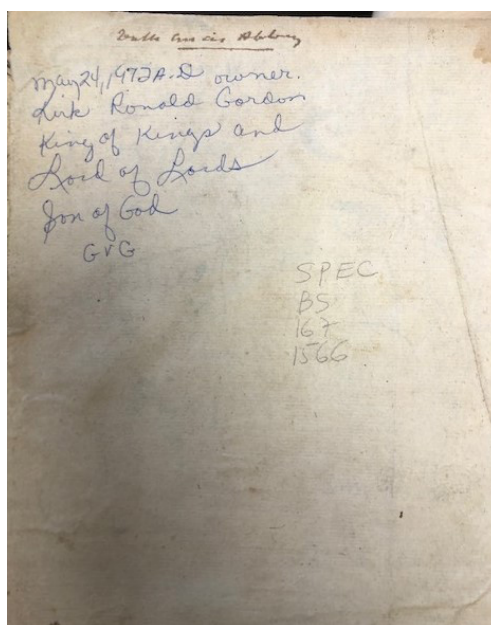 Abbey
May 24, 1972 A.D owner.
Kirk Ronald Gordon
King of Kings and
Lord of Lords
Son of God
GVG
SPEC
BS
167
1566